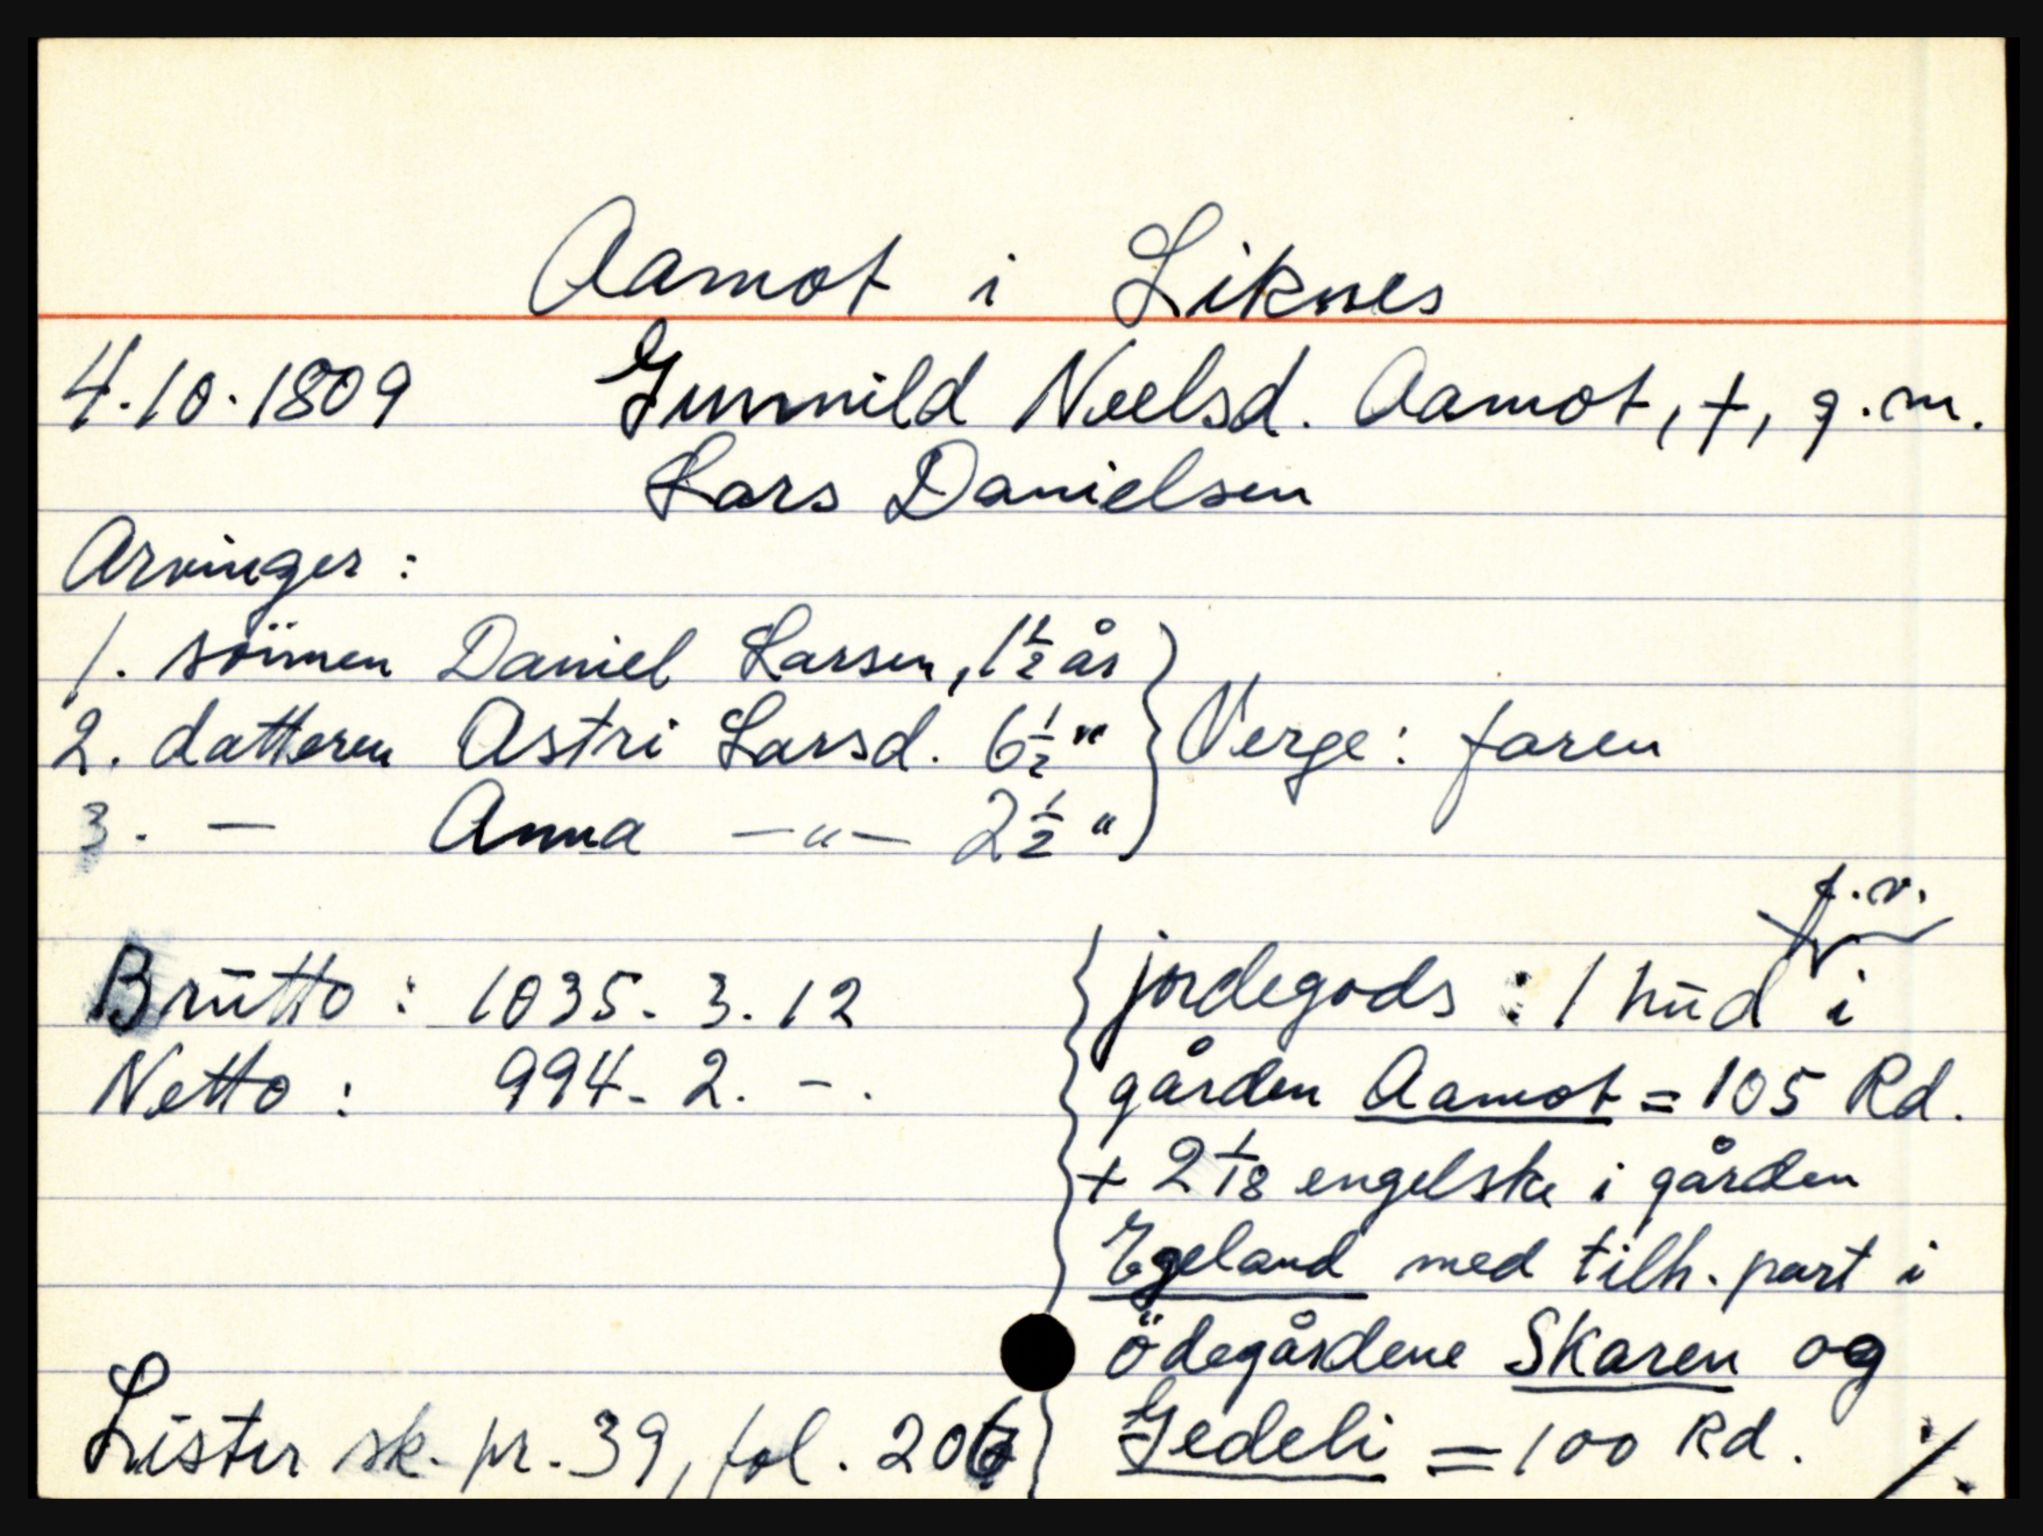 Aamot i Liknes
4.10.1809 Gunnild Neelsd. Aamot, †, g.m.
Lars Danielsen
Arvinger:
1. sönnen Daniel Larsen, 1½ år
2. datteren Astri Larsd. 6½ "
3. — Anna —"— 2½ "
Verge: faren
Brutto: 1035. 3. 12
Netto: 994. 2. -.
f.v.
jordegods: 1 hud i
gården Aamot = 105 Rd.
+ 2 1/18 engelske i gården
Egeland med tilh. part i
ödegårdene Skaren og
Gedeli = 100 Rd. ./.
Lister sk. pr. 39, fol. 206